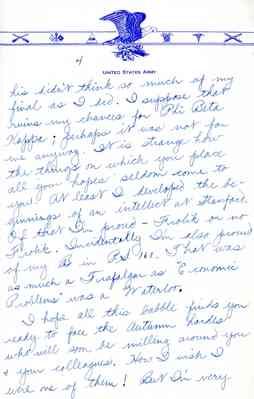 UNITED STATES ARMY
4
his didn't think so much of my
final as I did. I suppose that
ruins my chances for Phi Beta
Kappa; perhaps it was not for
me anyway. It is strange how
the things on which you place
all your hopes seldom come to
you. At least I developed the be-
ginnings of an intellect at Stanford.
Of that I'm proud - Frolik or no
Frolik. Incidentally I'm also proud
of my B in P.S. 101. That was
as much a Trafalgar as "Economic
Problems" was a Waterloo.
I hope all this babble finds you
ready to face the Autumn hordes
who will soon be milling around you
& your colleagues. How I wish I
were one of them! But I'm very